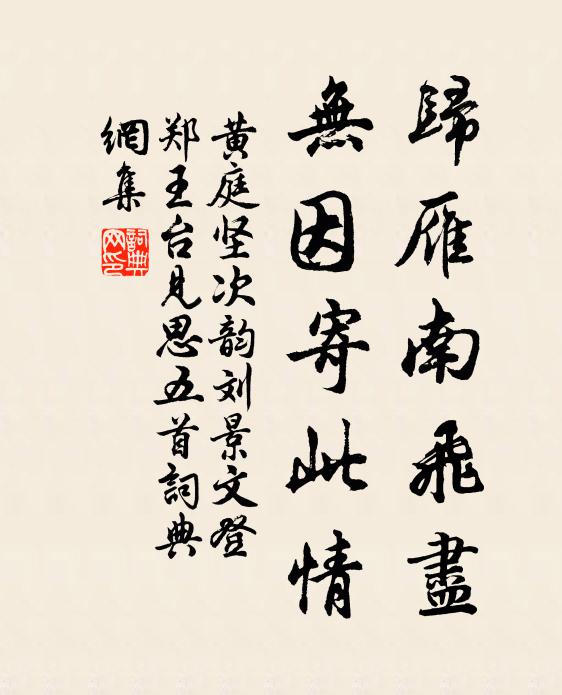 歸雁南飛盡
無因寄此情
黄庭坚次韵刘景文登
郑王台見思五首詞典
網集
詞典網印